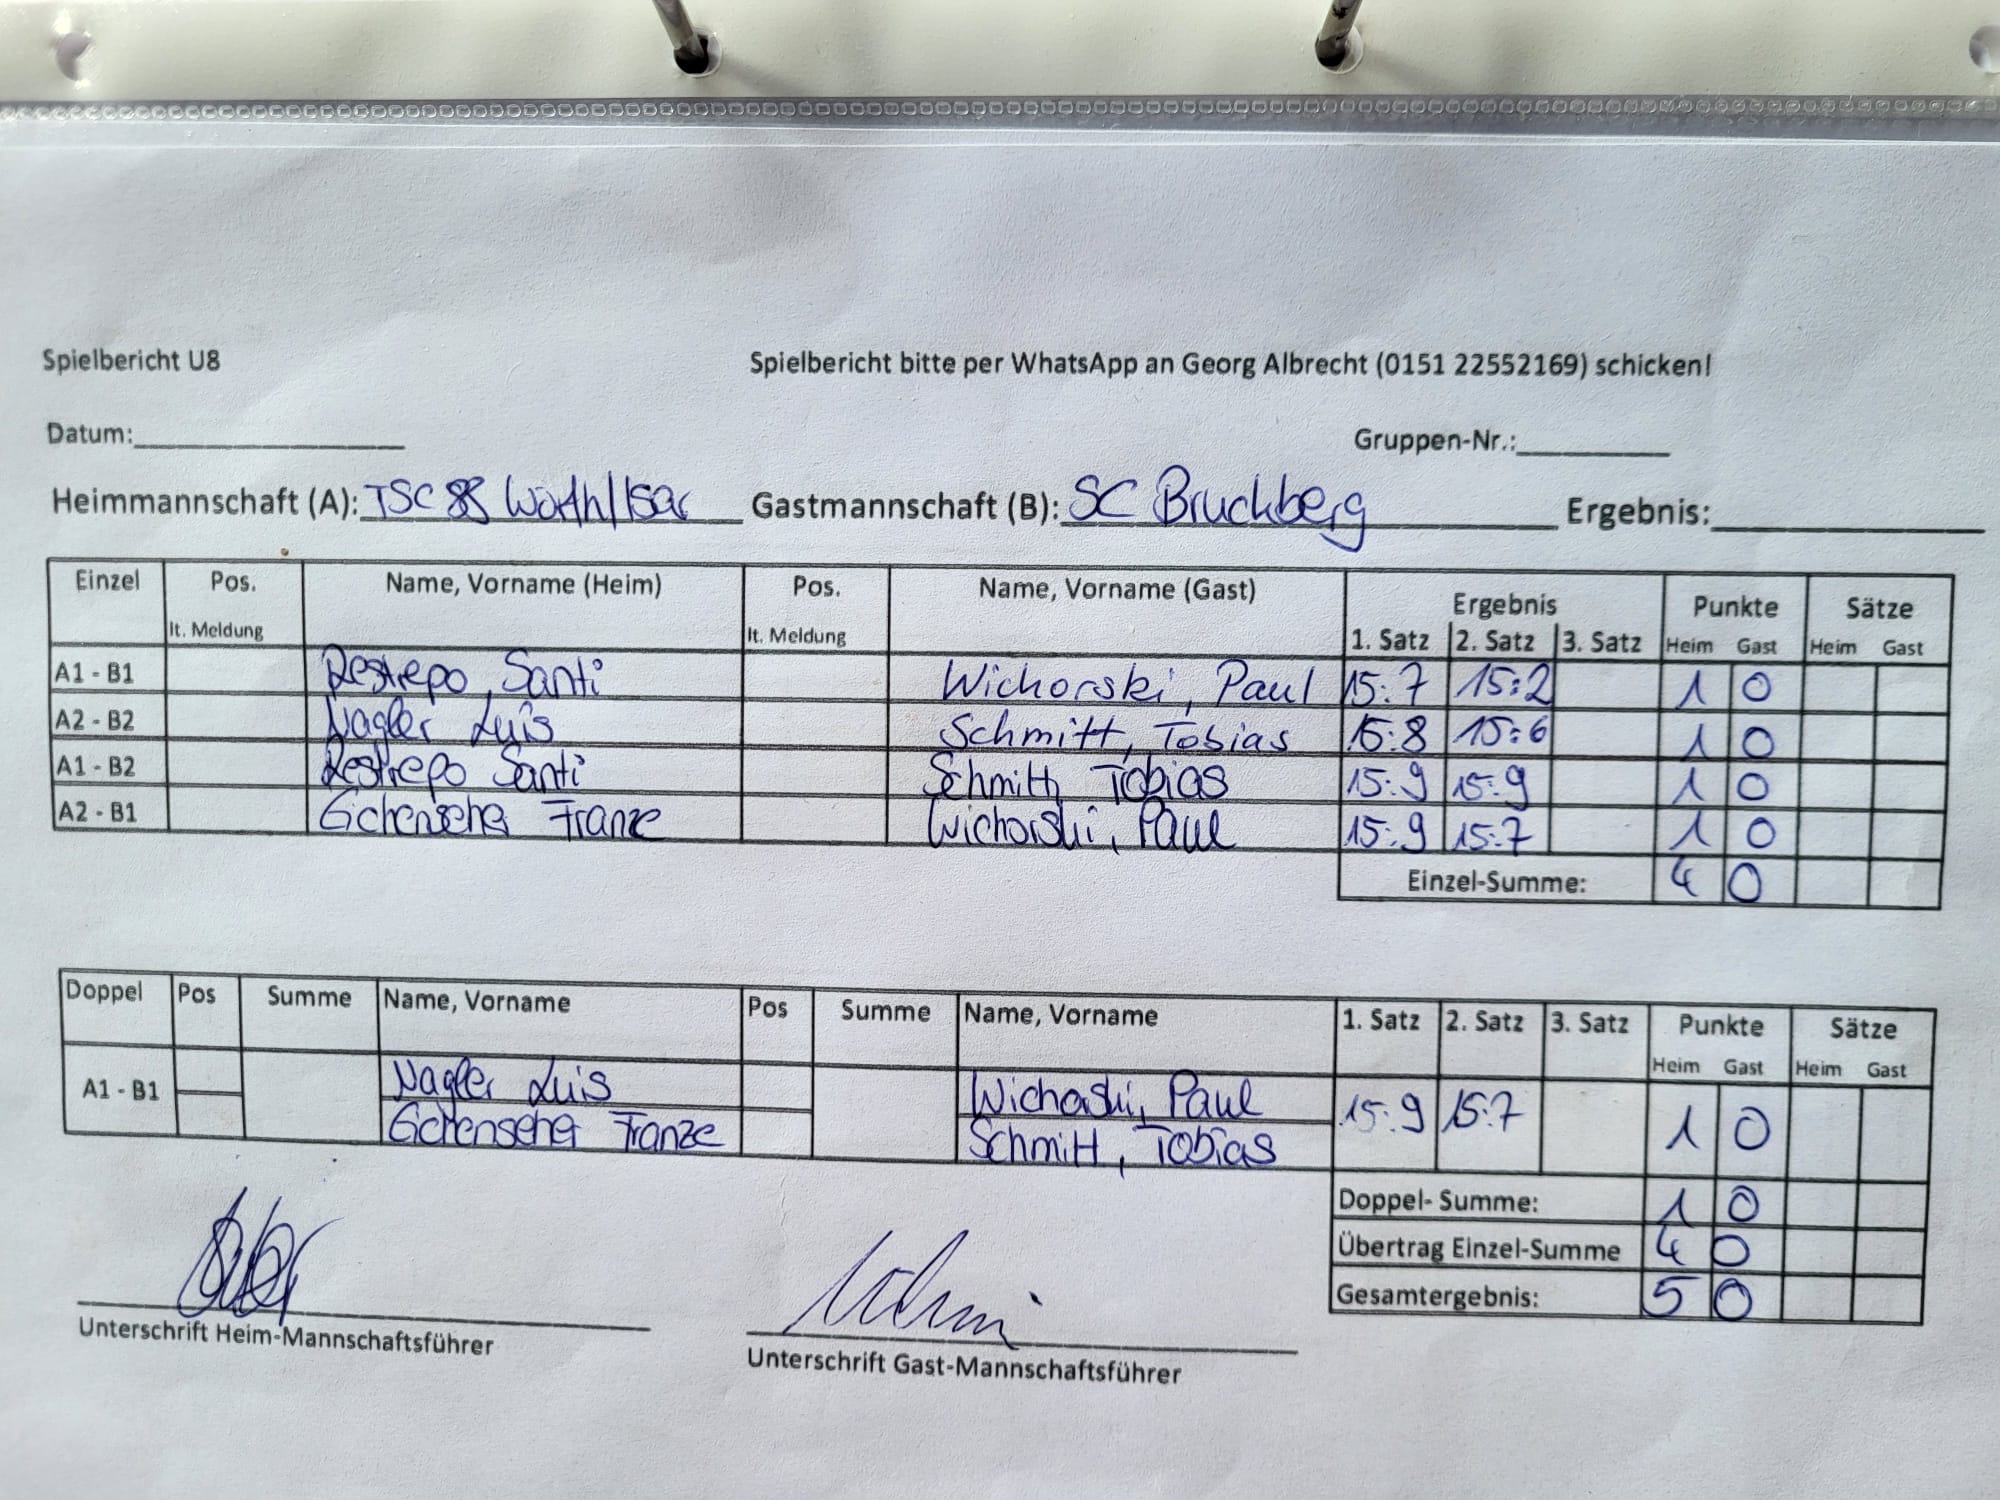 Spielbericht U8 Spielbericht bitte per WhatsApp an Georg Albrecht (0151 22552169) schicken!
Datum: Gruppen-Nr.:
Heimmannschaft (A): TSC 88 Wörth/Isar Gastmannschaft (B): SC Bruckberg Ergebnis:
Einzel Pos. Name, Vorname (Heim) Pos. Name, Vorname (Gast) Ergebnis Punkte Sätze
lt. Meldung lt. Meldung 1. Satz 2. Satz 3. Satz Heim Gast Heim Gast
A1 - B1 Restrepo, Santi Wichorski, Paul 15:7 15:2 1 0
A2 - B2 Nagler Luis Schmitt, Tobias 15:8 15:6 1 0
A1 - B2 Restrepo Santi Schmitt, Tobias 15:9 15:9 1 0
A2 - B1 Eichenseher Franze Wichorski, Paul 15:9 15:7 1 0
Einzel-Summe: 4 0
Doppel Pos Summe Name, Vorname Pos Summe Name, Vorname 1. Satz 2. Satz 3. Satz Punkte Sätze
Heim Gast Heim Gast
A1 - B1 Nagler Luis Wichorski, Paul 15:9 15:7 1 0
Eichenseher Franze Schmitt, Tobias
Doppel- Summe: 1 0
Übertrag Einzel-Summe 4 0
Gesamtergebnis: 5 0
Unterschrift Heim-Mannschaftsführer Unterschrift Gast-Mannschaftsführer